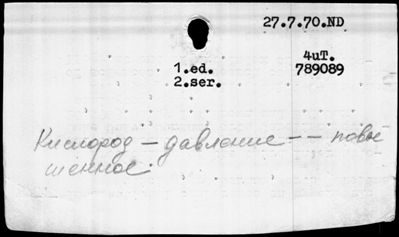 27.7.70.ND
4uT.
1.ed. 789089
2.ser.
Кислород – давление – – повы
шенное